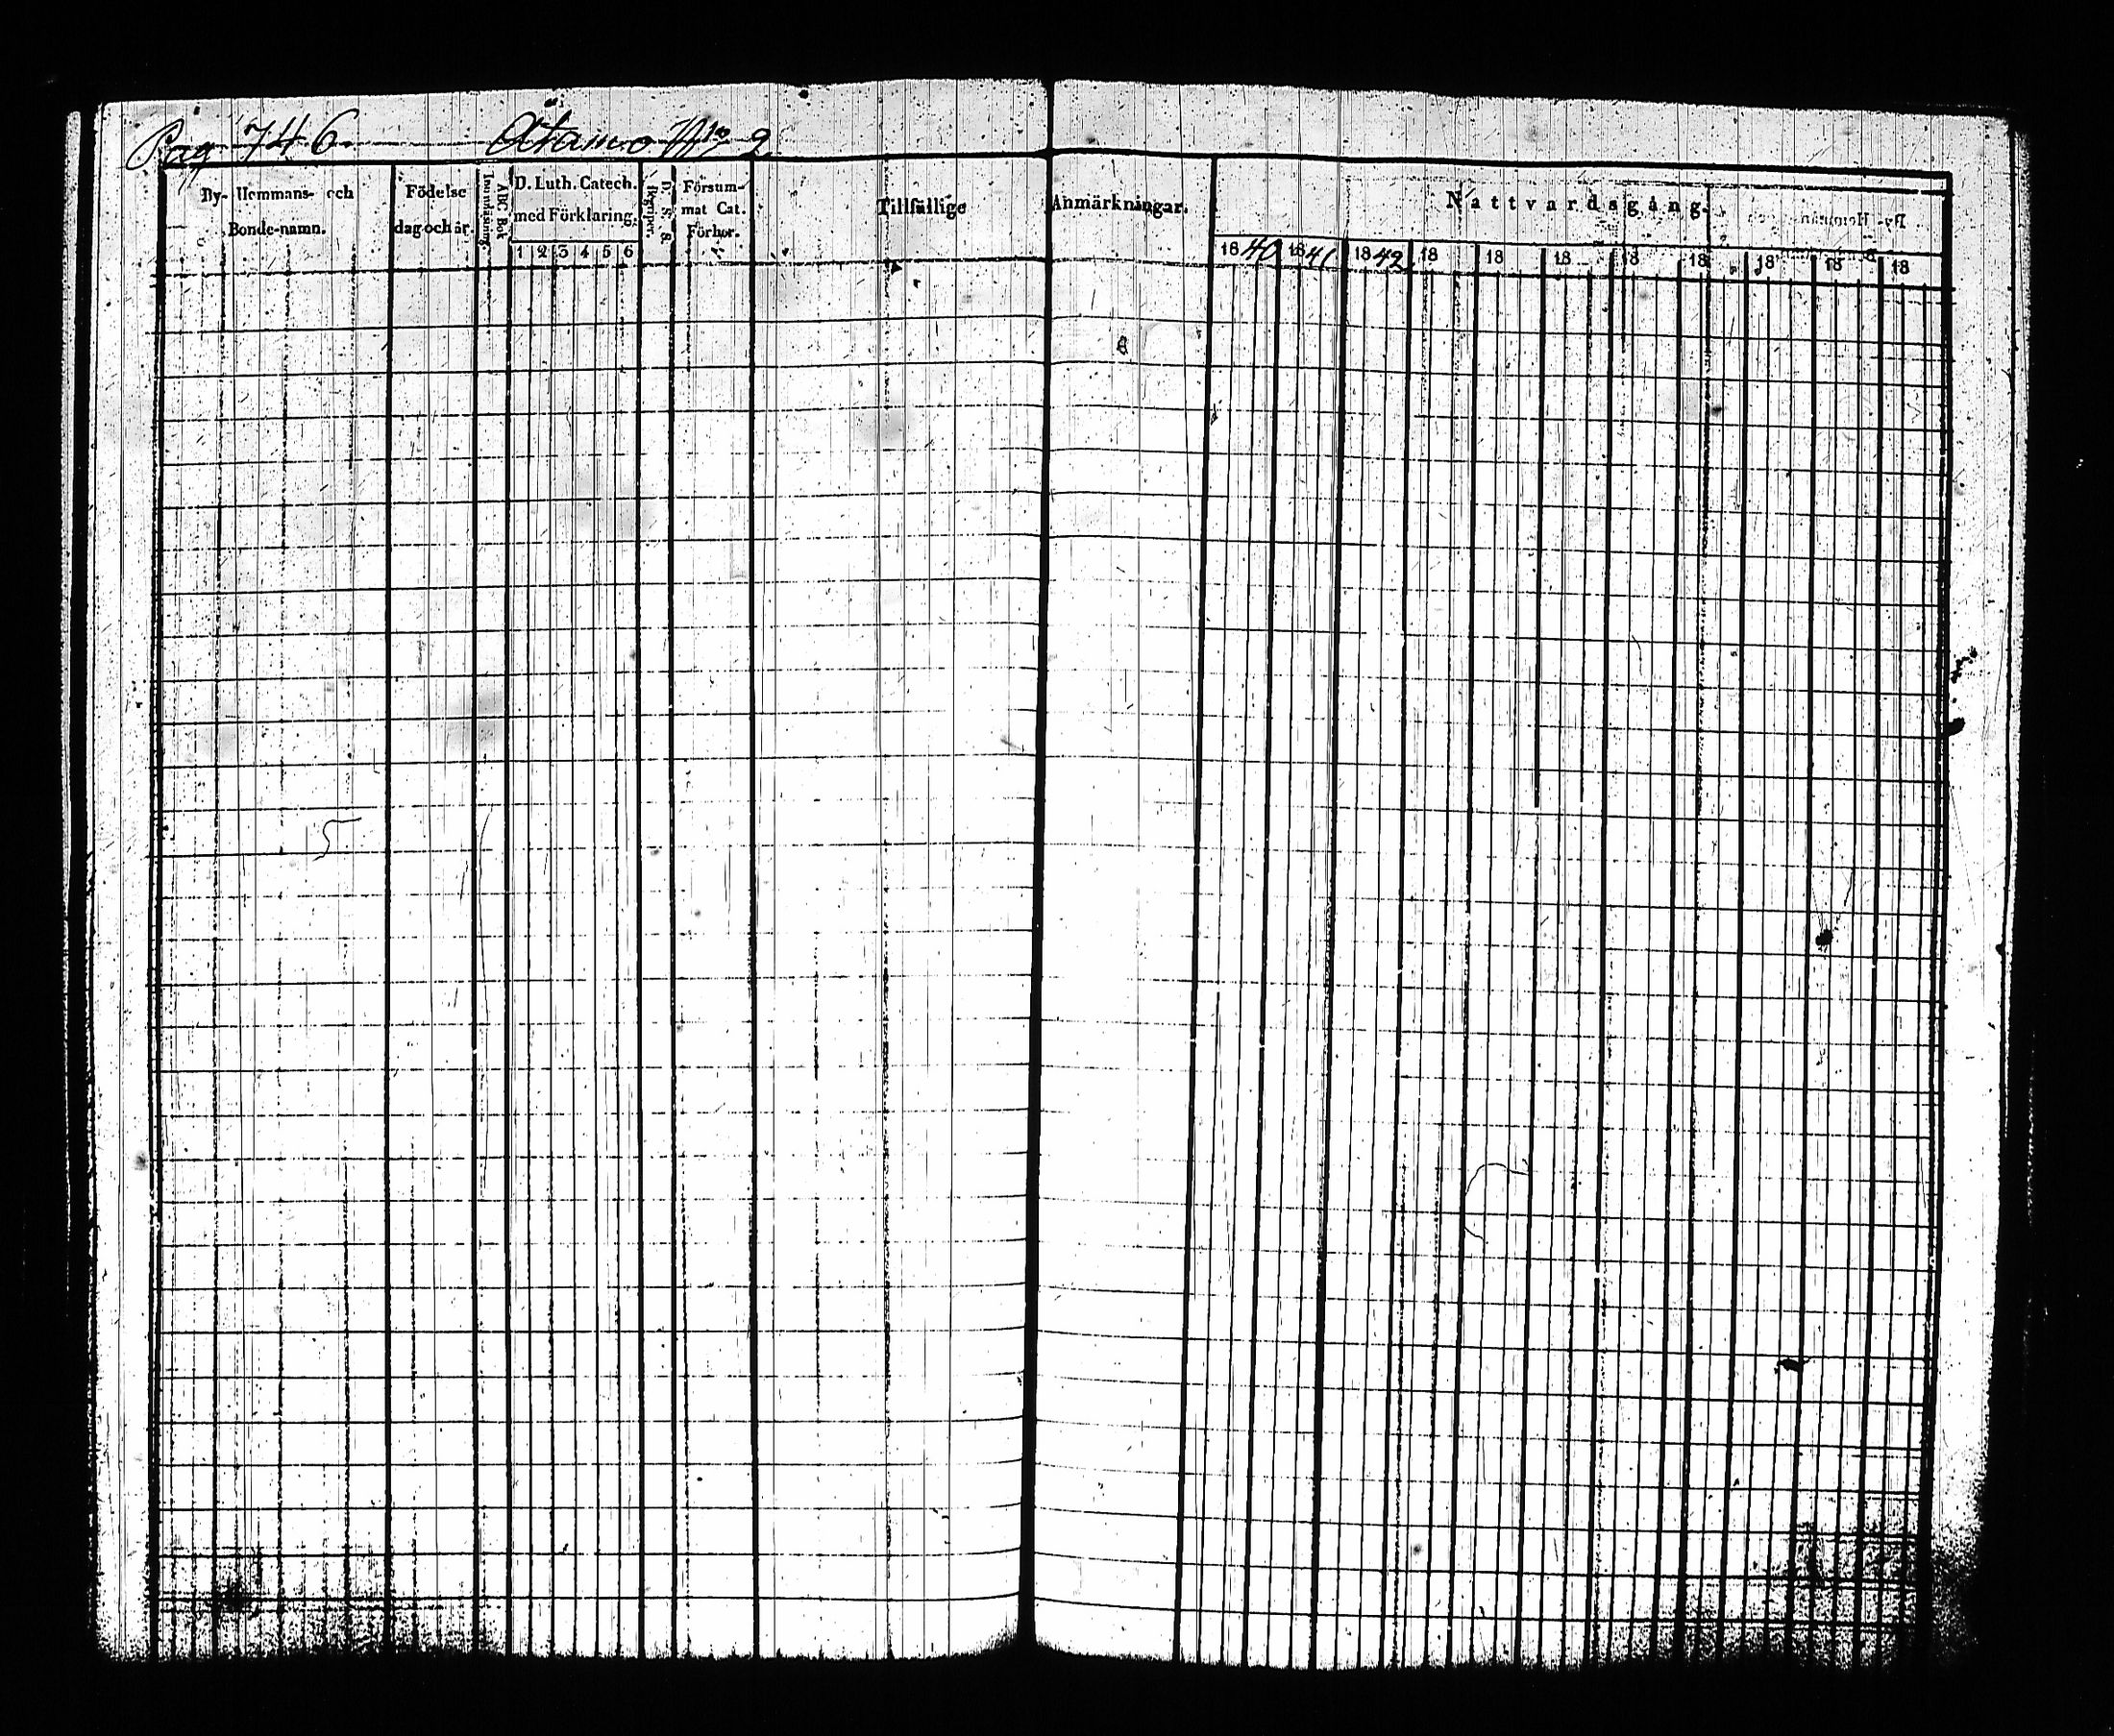 Pag 746. Atamo No 2
By- Hemmans- och Bonde-namn.
Födelse dag och år.
Innanläsning.
ABC Bok
D. Luth. Catech. med Förklaring.
1 2 3 4 5 6
Begriper.
D. S. S.
Försum- mat Cat. Förhör.
Tillfällige Anmärkningar.
Nattvardsgång.
1840 1841 1842 18 18 18 18 18 18 18 18